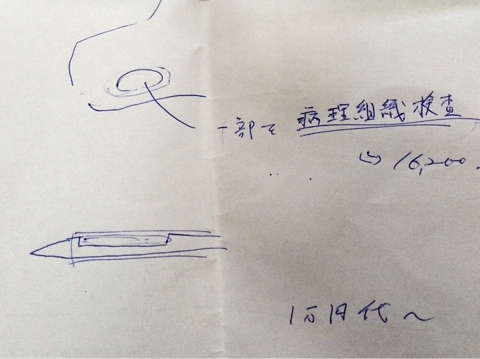 一部を 病理組織検査
↳ 16,200.
1万円代〜